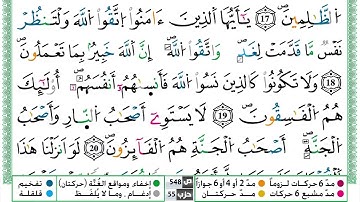 ٱلظَّٰلِمِينَ ۝١٧ يَٰٓأَيُّهَا ٱلَّذِينَ ءَامَنُوا۟ ٱتَّقُوا۟ ٱللَّهَ وَلْتَنظُرْ
نَفْسٌ مَّا قَدَّمَتْ لِغَدٍ ۖ وَٱتَّقُوا۟ ٱللَّهَ ۚ إِنَّ ٱللَّهَ خَبِيرٌۢ بِمَا تَعْمَلُونَ
۝١٨ وَلَا تَكُونُوا۟ كَٱلَّذِينَ نَسُوا۟ ٱللَّهَ فَأَنسَىٰهُمْ أَنفُسَهُمْ ۚ أُو۟لَٰٓئِكَ
هُمُ ٱلْفَٰسِقُونَ ۝١٩ لَا يَسْتَوِىٓ أَصْحَٰبُ ٱلنَّارِ وَأَصْحَٰبُ
ٱلْجَنَّةِ ۚ أَصْحَٰبُ ٱلْجَنَّةِ هُمُ ٱلْفَآئِزُونَ ۝٢٠ لَوْ أَنزَلْنَا هَٰذَا
مدّ 6 حركات لزوماً مدّ 2 أو 4 أو 6 جوازاً ص 548 إخفاء، ومواقع الغُنَّة (حركتان) تفخيم
مدّ مشبع 6 حركات مدّ حركتان حزب 55 إدغام، وما لا يُلفَظ قلقلة